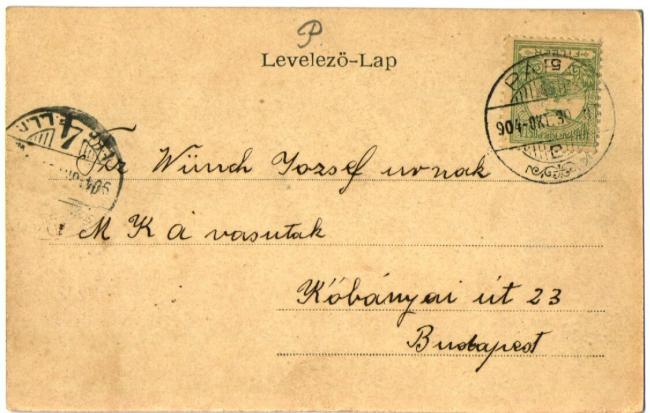 P
Levelező-Lap
904 OKT. 30
Tkr Wünch Jozsef urnak
M K Á vasutak
Kőbányai út 23
Budapest